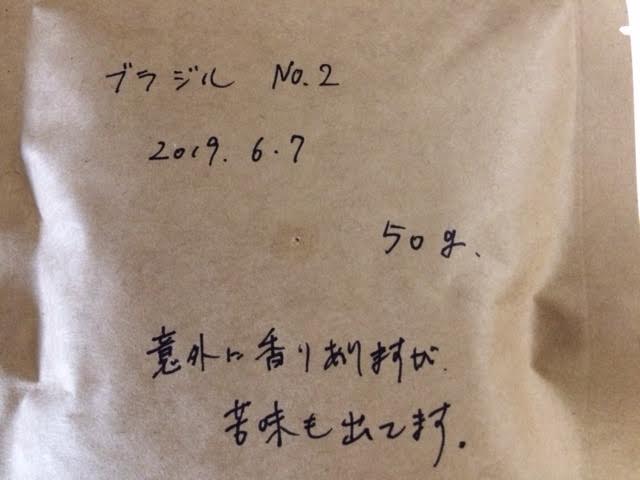 ブラジル No.2
2019.6.7
50g.
意外に香りありますが
苦味も出てます。